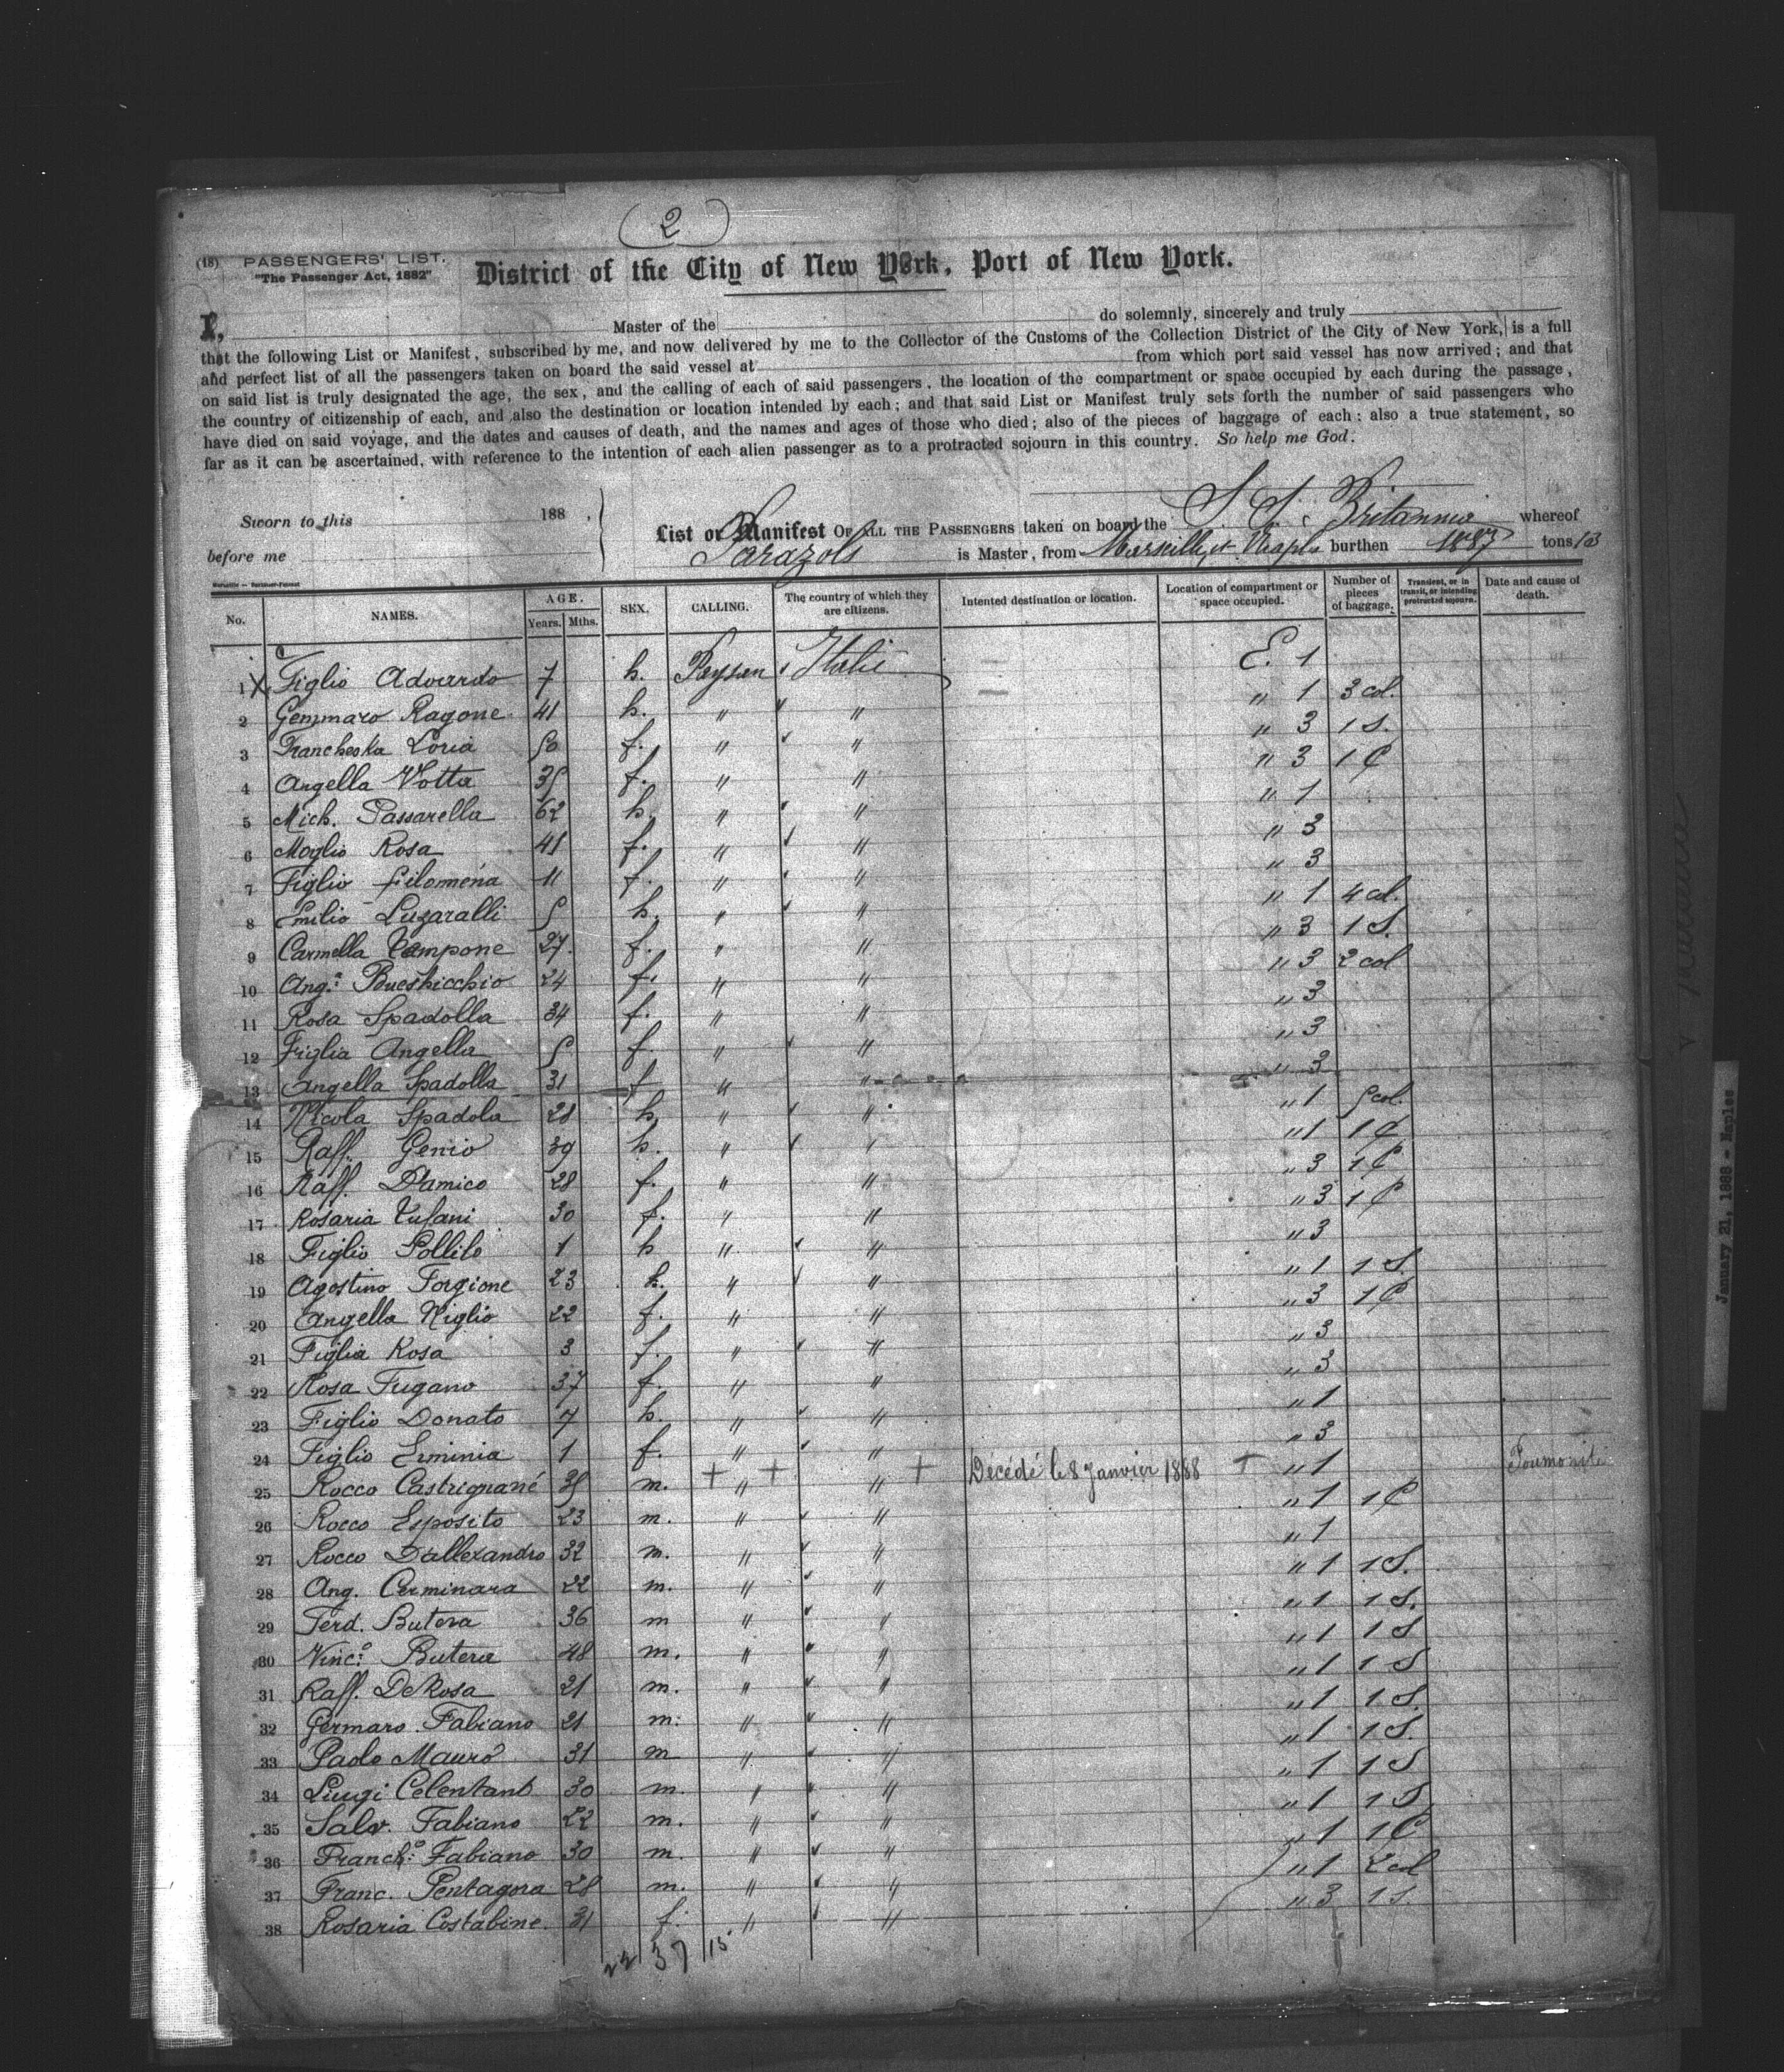 (2)
(18) PASSENGERS' LIST.
"The Passenger Act, 1882"
District of the City of New York, Port of New York.
I, Master of the do solemnly, sincerely and truly
that the following List or Manifest, subscribed by me, and now delivered by me to the Collector of the Customs of the Collection District of the City of New York, is a full
and perfect list of all the passengers taken on board the said vessel at from which port said vessel has now arrived; and that
on said list is truly designated the age, the sex, and the calling of each of said passengers, the location of the compartment or space occupied by each during the passage,
the country of citizenship of each, and also the destination or location intended by each; and that said List or Manifest truly sets forth the number of said passengers who
have died on said voyage, and the dates and causes of death, and the names and ages of those who died; also of the pieces of baggage of each: also a true statement, so
far as it can be ascertained, with reference to the intention of each alien passenger as to a protracted sojourn in this country. So help me God.
Sworn to this 188 .
before me
List or Manifest OF ALL THE PASSENGERS taken on board the S. S. Britannia whereof
Sarazols is Master, from Marseille et Naples burthen 1887 tons 13
No. NAMES. AGE. Years. Mths. SEX. CALLING. The country of which they are citizens. Intented destination or location. Location of compartment or space occupied. Number of pieces of baggage. Transient, or in transit, or intending protracted sojourn. Date and cause of death.
1 X Figlio Adoardo 7 h. Paysan Italie E. 1
2 Gennaro Ragone 41 h. " " " 1 3 col.
3 Francheska Loria 50 f. " " " 3 1 S.
4 Angella Votta 35 f. " " " 3 1 C
5 Mich. Passarella 62 h. " " " 1
6 Moglio Rosa 41 f. " " " 3
7 Figlio filomena 11 f. " " " 3
8 Emilio Luzaralli 5 h. " " " 1 4 col.
9 Carmella Tempone 27 f. " " " 3 1 S.
10 Ang.a 24 f. " " " 3 2 col
11 Rosa Spadolla 34 f. " " " 3
12 Figlia Angella 5 f. " " " 3
13 Angella Spadolla 31 f " " " 3
14 Nicola Spadola 28 h. " " " 1 5 col.
15 Raff. Genio 39 h. " " " 1 1 C
16 Raff. D'amico 28 f. " " " 3 1 C
17 Rosaria Tufani 30 f. " " " 3 1 C
18 Figlio Pollito 1 h " " " 3
19 Agostino Forgione 23 h. " " " 1 1 S.
20 Angella Niglio 22 f. " " " 3 1 C
21 Figlia Rosa 3 f. " " " 3
22 Rosa Fugano 37 f. " " " 3
23 Figlio Donato 7 h. " " " 1
24 Figlio Erminia 1 f. " " " 3
25 Rocco Castrignané 35 m. + " + " + Decédé le 8 Janvier 1888 + " 1
26 Rocco Esposito 23 m. " " " 1 1 C
27 Rocco D'allexandro 32 m. " " " 1
28 Ang. Cerminara 22 m. " " " 1 1 S.
29 Ferd. Butera 36 m " " " 1 1 S.
30 Vinc:o Butera 48 m. " " " 1 1 S
31 Raff. De Rosa 21 m. " " " 1 1 S
32 Germaro Fabiano 21 m. " " " 1 1 S.
33 Paolo Mauro 31 m " " " 1 1 S.
34 Liugi Celentano 30 m. " " " 1 1 S
35 Salv. Fabiano 22 m. " " " 1 1 S
36 Franch:o Fabiano 30 m. " " " 1 1 C
37 Franc. Pentagora 28 m. " " " 1 2 col
38 Rosaria Costabine 31 f. " " " 3 1 S.
22 37 15
January 21, 1888 - Naples